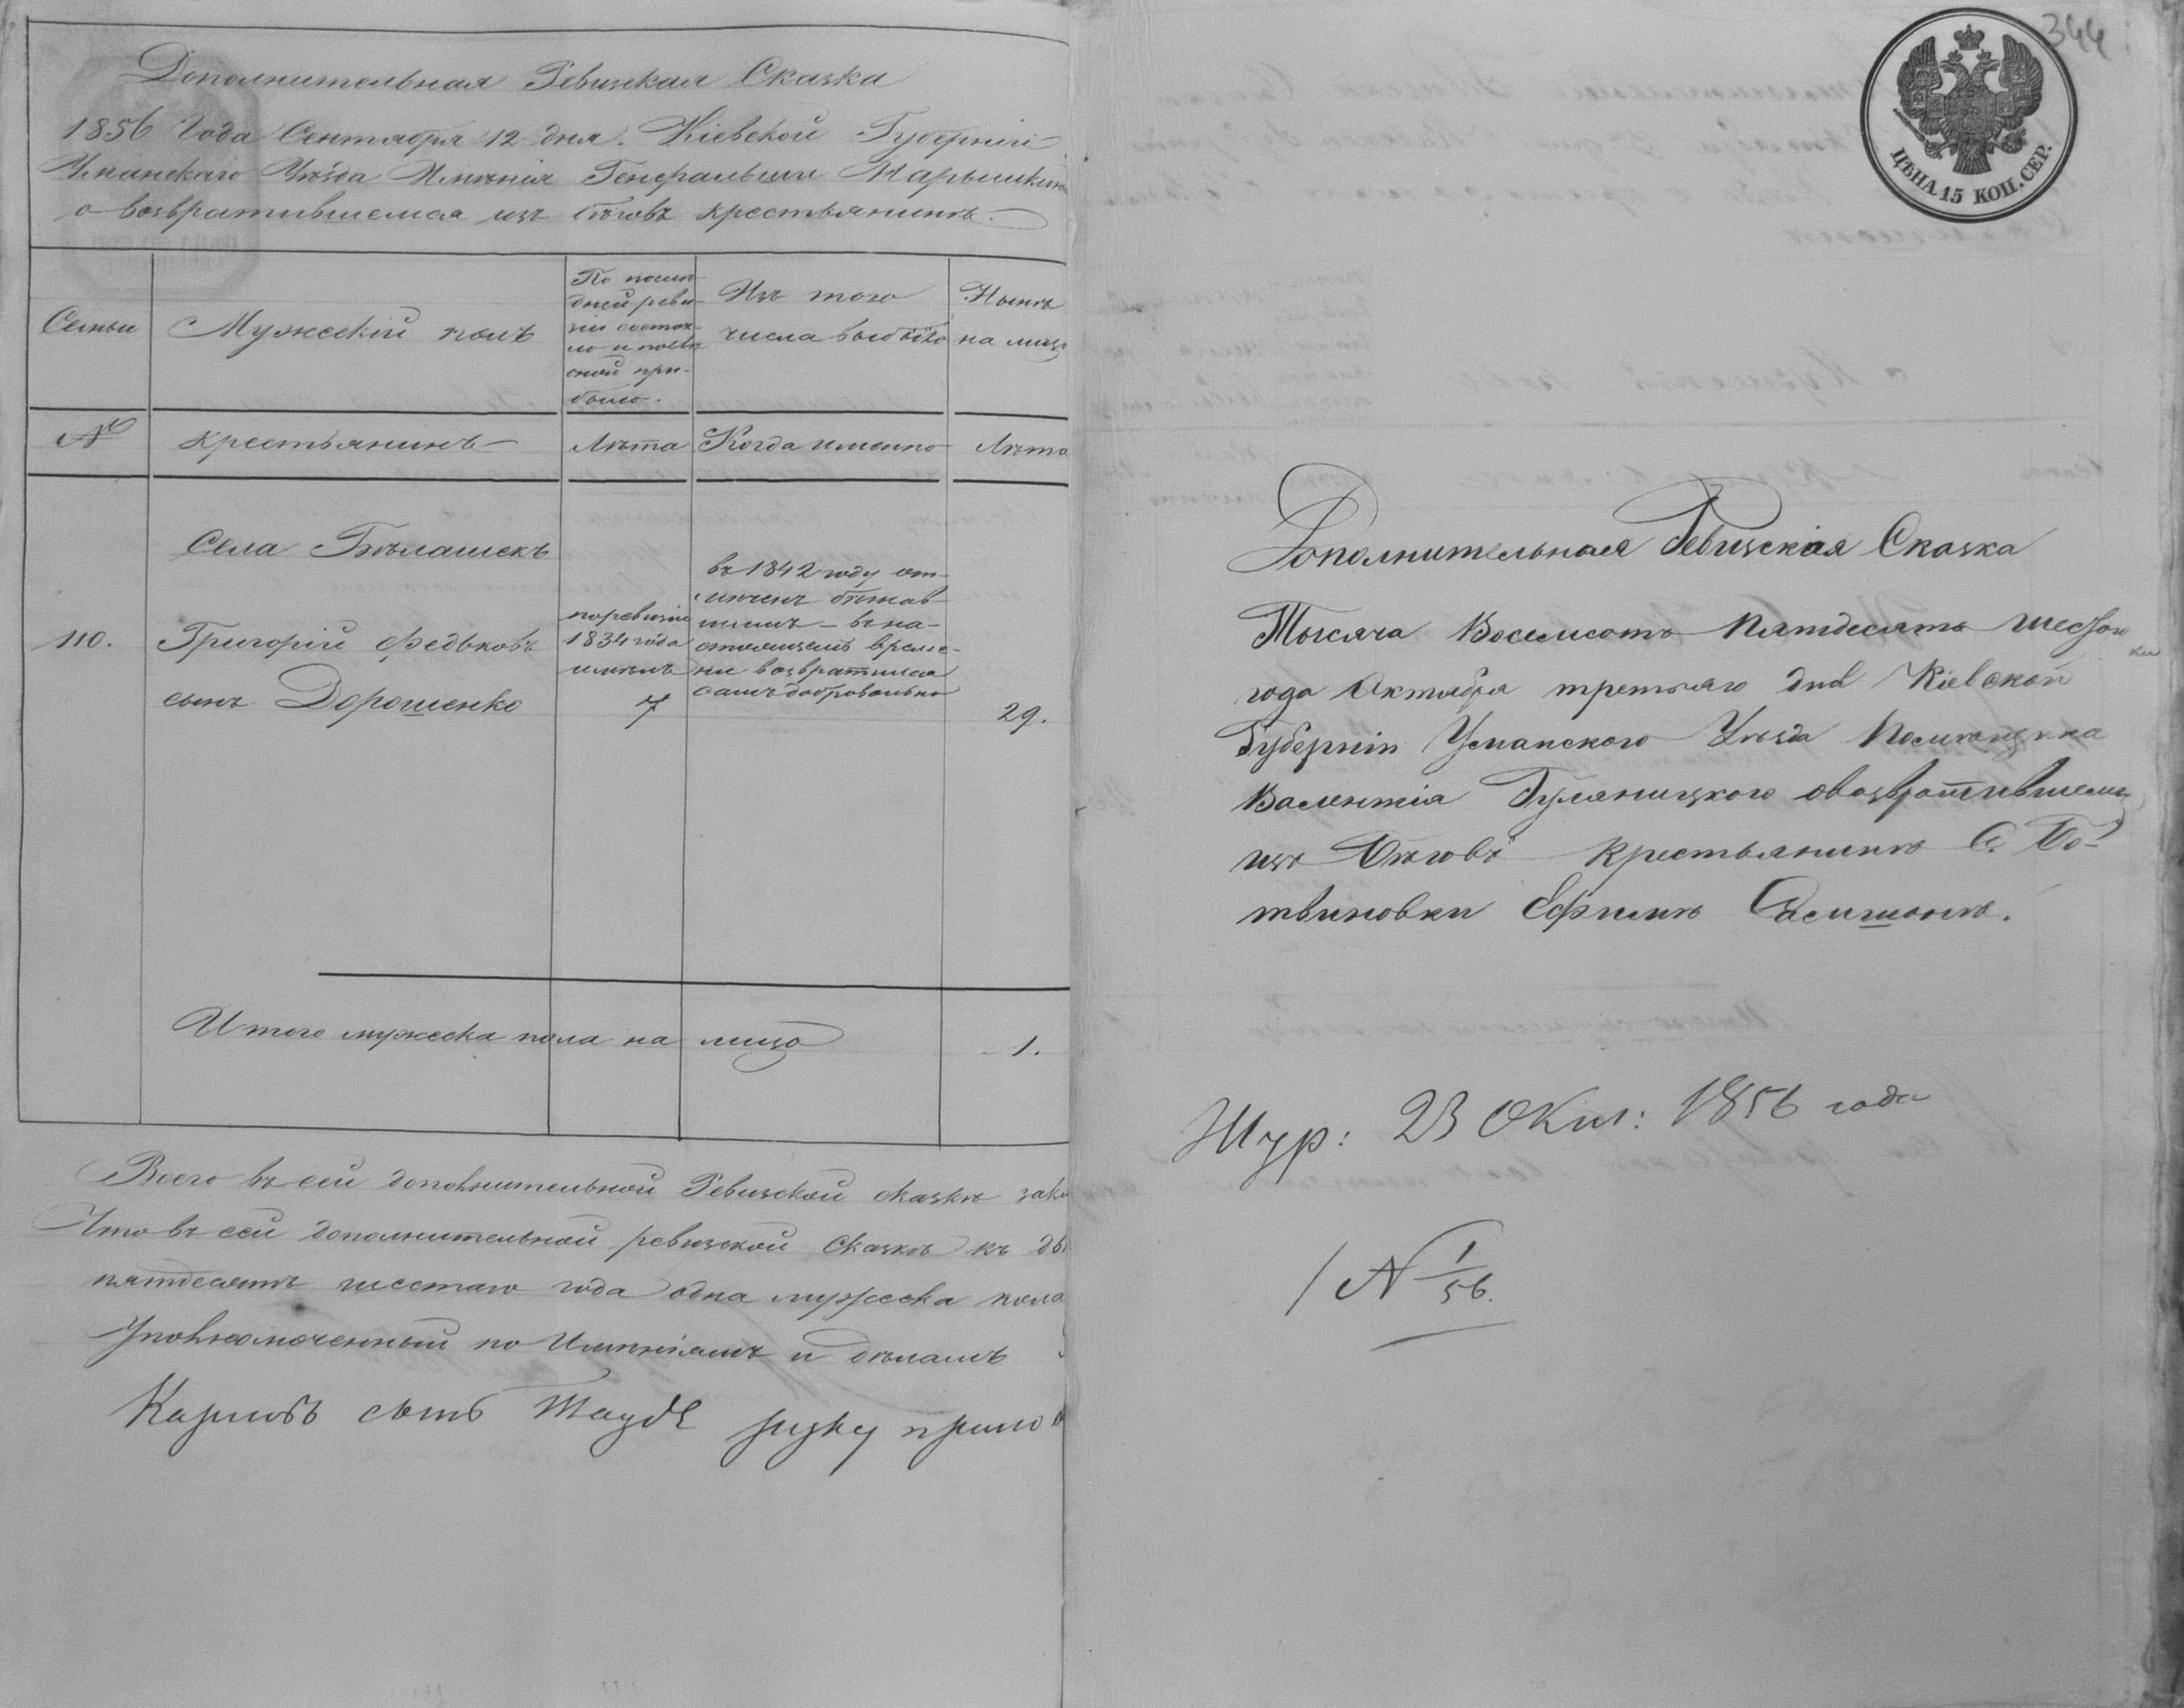 Дополнительная Ревизская Сказка
1856 Года Сентября 12 дня. Кіевской Губерніи
Уманскаго Уѣзда Имѣнія Генеральши Нарышкин
о возвратившемся изъ бѣговъ крестьянинѣ.
Семьи
Мужескій полъ
По послѣ-
дней реви-
зіи состоя-
ло и послѣ
оной при-
было.
Изъ того
числа выбыло
Нынѣ
на лицо
№
крестьянинъ
Лѣта
Когда именно
Лѣта
Села Бѣлашекъ
110.
Григорій Федьковъ
сынъ Дорошенко
по ревизіи
1834 года
имѣлъ
7
въ 1842 году от-
мѣченъ бѣжав-
шимъ – въ на-
стоящемъ време-
ни возвратился
самъ добровольно
29.
Итого мужеска пола на лицо
1.
Всего въ сей дополнительной Ревизской сказкѣ
Что въ сей дополнительной ревизской Сказкѣ къ
пятдесятъ шестаго года одна мужеска пола
Уполномоченный по Имѣніямъ и дѣламъ
Карлов сынъ руку прило
344
ЦѢНА 15 КОП. СЕР.
Дополнительная Ревизская Сказка
Тысяча Восемсотъ Пятдесятъ шестого
года Октября третьяго дня Кіевской
Губерніи Уманского Уѣзда Помѣщика
Валентія Гуляницкого овозвратившемся
изъ Бѣговъ крестьянинѣ С. Бо-
твиновки Ефимѣ
Жур: 23 Окт: 1856 года
№ 1/56.